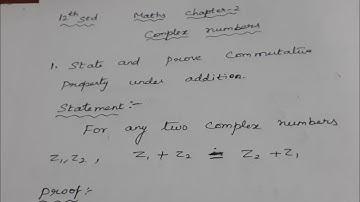 12th Std Maths Chapter-2
Complex numbers
1. State and prove Commutative
Property under addition.
Statement:-
For any two complex numbers
Z₁, Z₂, Z₁ + Z₂ = Z₂ + Z₁
Proof:-